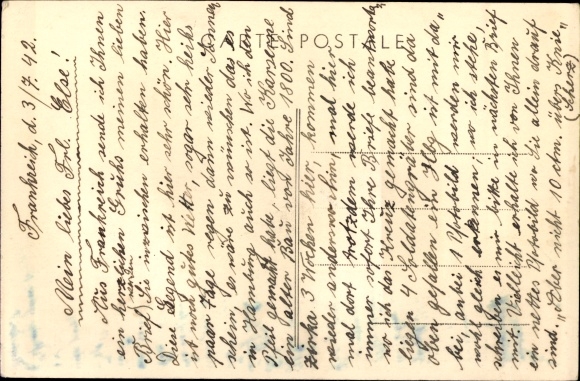 CARTE POSTALE
Frankreich, d. 3/7. 42.
Mein liebes Frl. Else!
Aus Frankreich sende ich Ihnen
ein herzlichen Gruß meinen lieben
Brief werden Sie inzwischen erhalten haben.
Die Gegend ist hier sehr schön. Hier
ist gutes Wetter, sogar sehr heiß
paar Tage regen dann wieder Sonnen
schein, es wäre zu wünschen das es
in Hamburg auch so ist. Wo ich den
gemacht habe, liegt die Kaserne
ein alter Bau vom Jahre 1800. Sind
zirka 3 Wochen hier, kommen
wieder anderswo hin, mal hier
mal dort trotzdem werde ich
immer sofort Ihre Briefe beantworten
wo ich das Kreuz gemacht habe
liegen 4 Soldatengräber sind da
oben gefallen ein Hbg ist mit da
bei, anbei 1 Notbild werden mir
wohl gleich erkennen, wo ich stehe,
schreiben es mir bitte in nächsten Brief
mit. Vielleicht erhalte ich von Ihnen
ein nettes wo Sie allein drauf
sind. "Aber nicht 10 ctm. über Knie"
(Scherz)